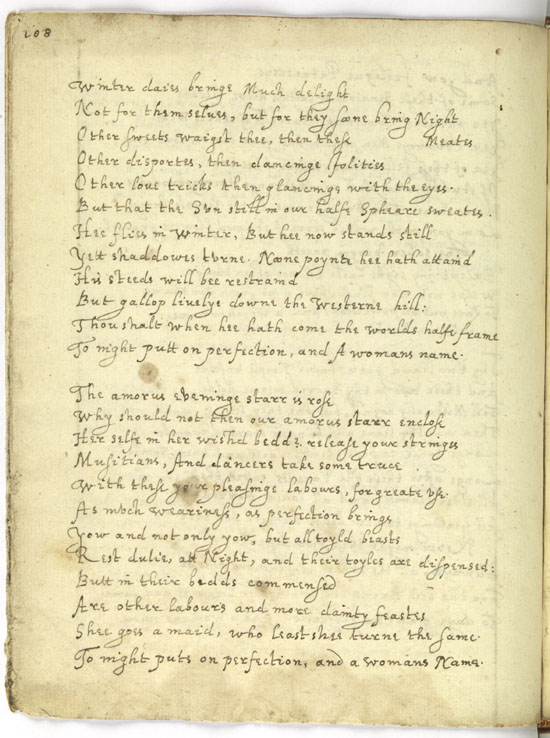 108
Winter daies bringe Much delight
Not for themselues, but for they soone bring Night
Other sweets waigst thee, then these Meates
Other disportes, then dancinge Jolities
Other loue tricks then glancinge with the eyes.
But that the Sun still in our halfe Spheare sweates.
Hee flies in Winter, But hee now stands still
Yett shaddowes turne. Noone poynte hee hath attaind
His steeds will bee restraind
But gallop liuelye downe the Westerne hill:
Thou shalt when hee hath come the worlds halfe frame
To night putt on perfection, and A womans name.
The amorus eveninge starr is rose
Why should not then our amorus starr enclose
Her selfe in her wishd bedd? release your strings
Musitians, And dancers take some truce
With these your pleasinge labours, for greate vse.
As much weariness, as perfection brings
Yow and not only yow, but all toyld beasts
Rest dulie, att Night, and their toyles are dispensed:
Butt in their bedds commensed
Are other labours and more dainty feastes
Shee goes a maid, who least shee turne the same.
To night puts on perfection, and a womans Name.